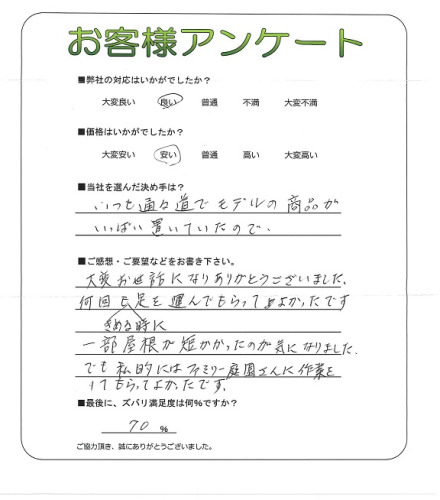 お客様アンケート
■弊社の対応はいかがでしたか？
大変良い 良い 普通 不満 大変不満
■価格はいかがでしたか？
大変安い 安い 普通 高い 大変高い
■当社を選んだ決め手は？
いつも通る道でモデルの商品が
いっぱい置いていたので、
■ご感想・ご要望などをお書き下さい。
大変お世話になりありがとうございました。
何回も足を運んでもらってよかったです
きめる時に
一部屋根が短かかったのが気になりました、
でも私的にはファミリー庭園さんに作業を
してもらってよかったです。
■最後に、ズバリ満足度は何％ですか？
70 ％
ご協力頂き、誠にありがとうございました。